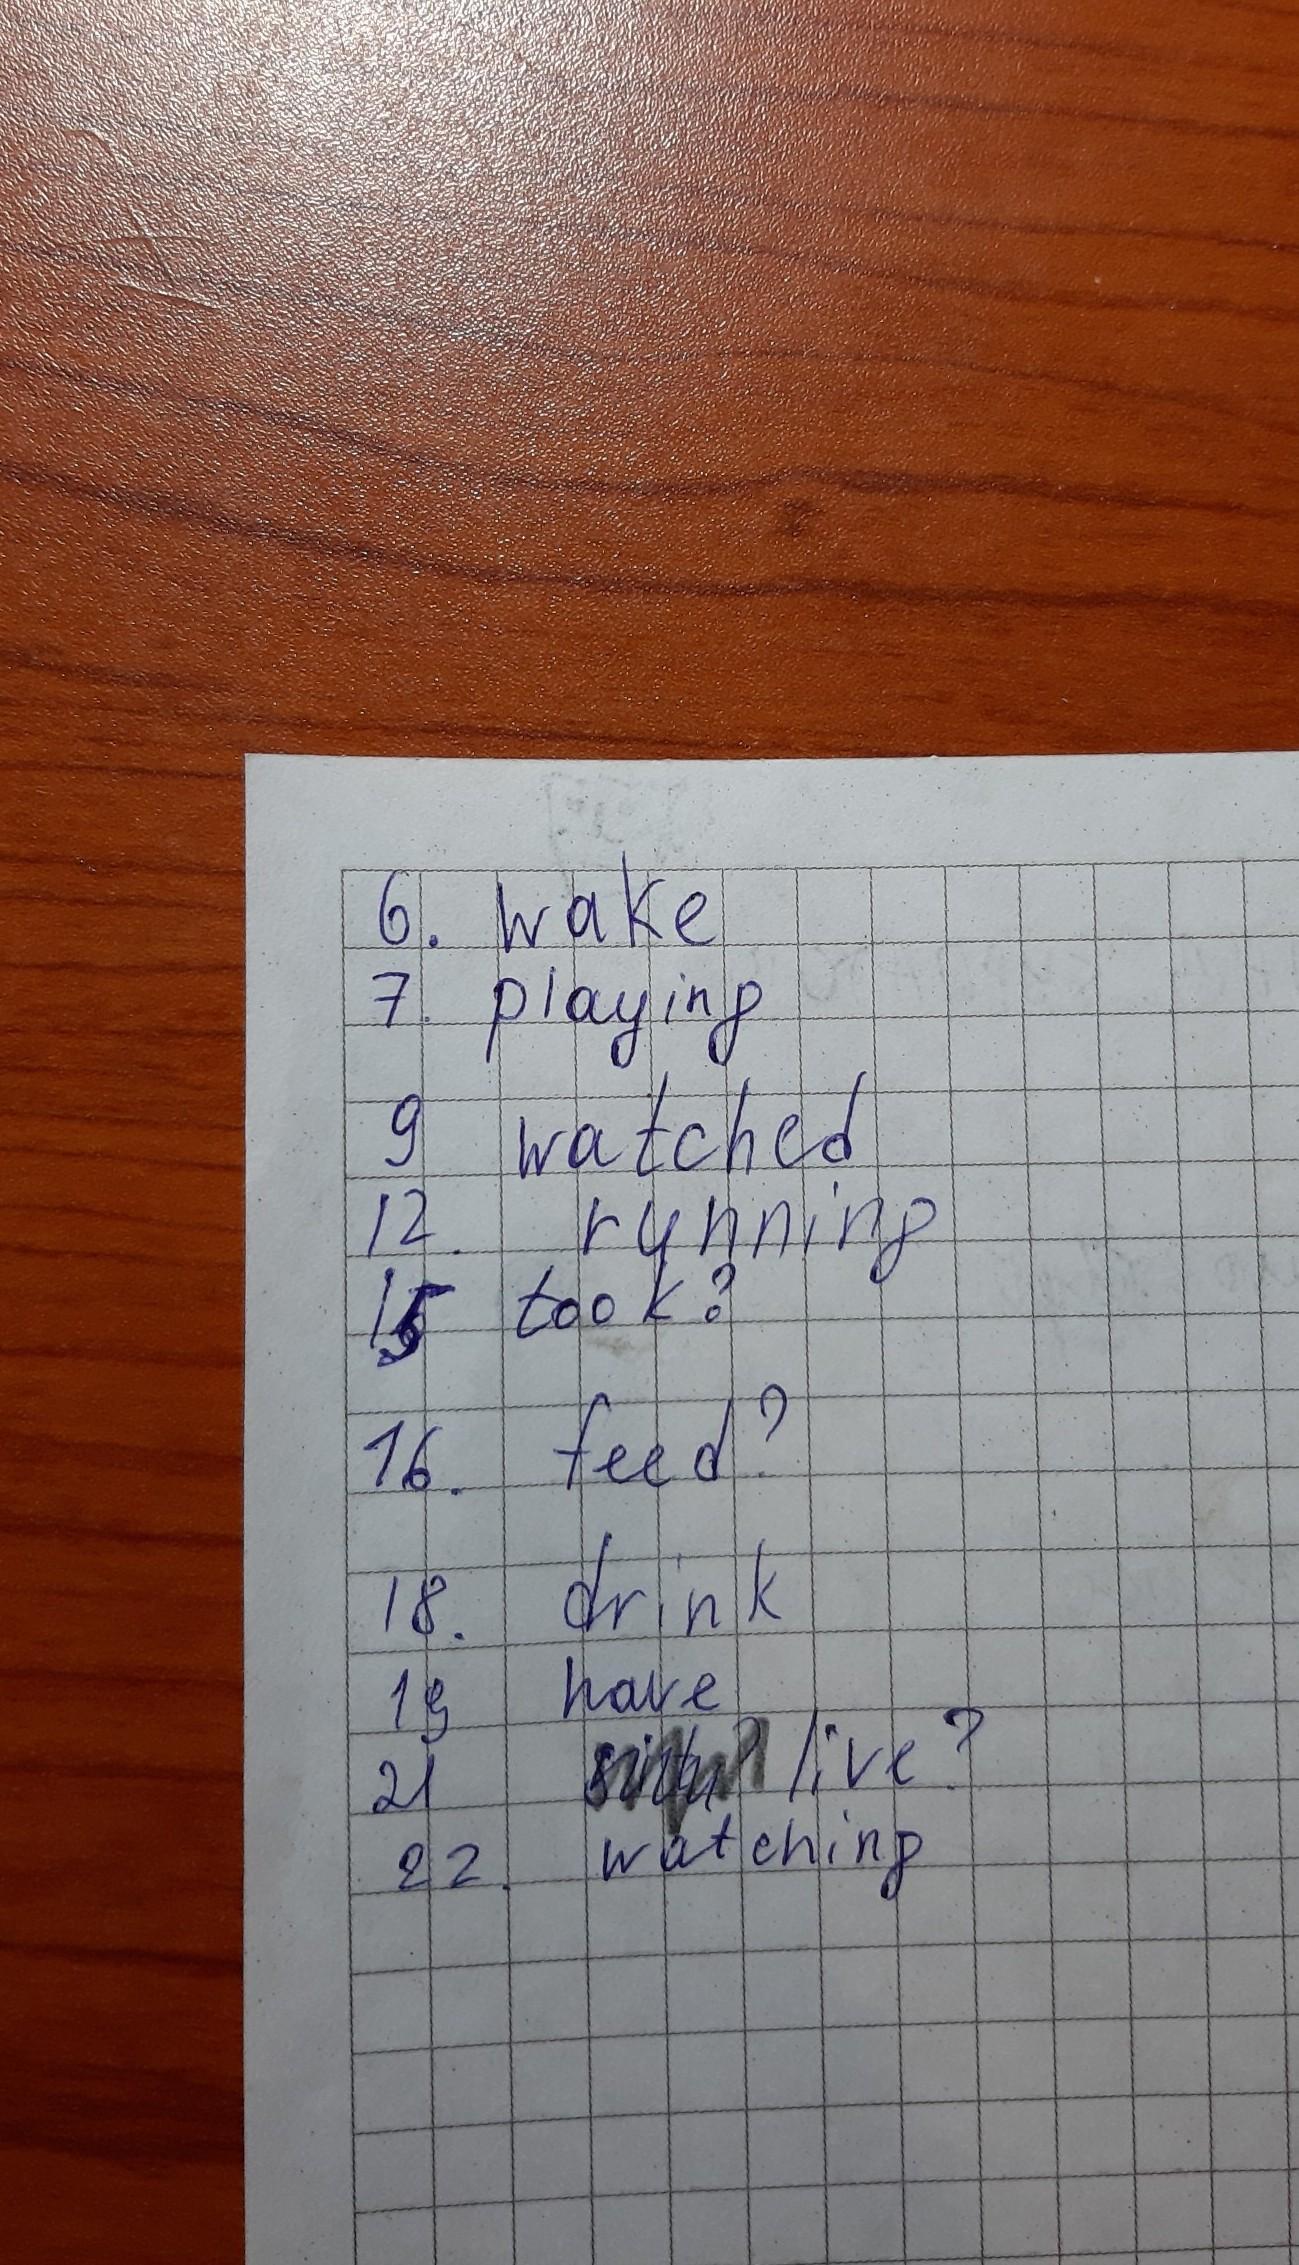 6. wake
7. playing
9 watched
12. rynning
15 took?
16. feed?
18. drink
19 have
21 live?
22. watching